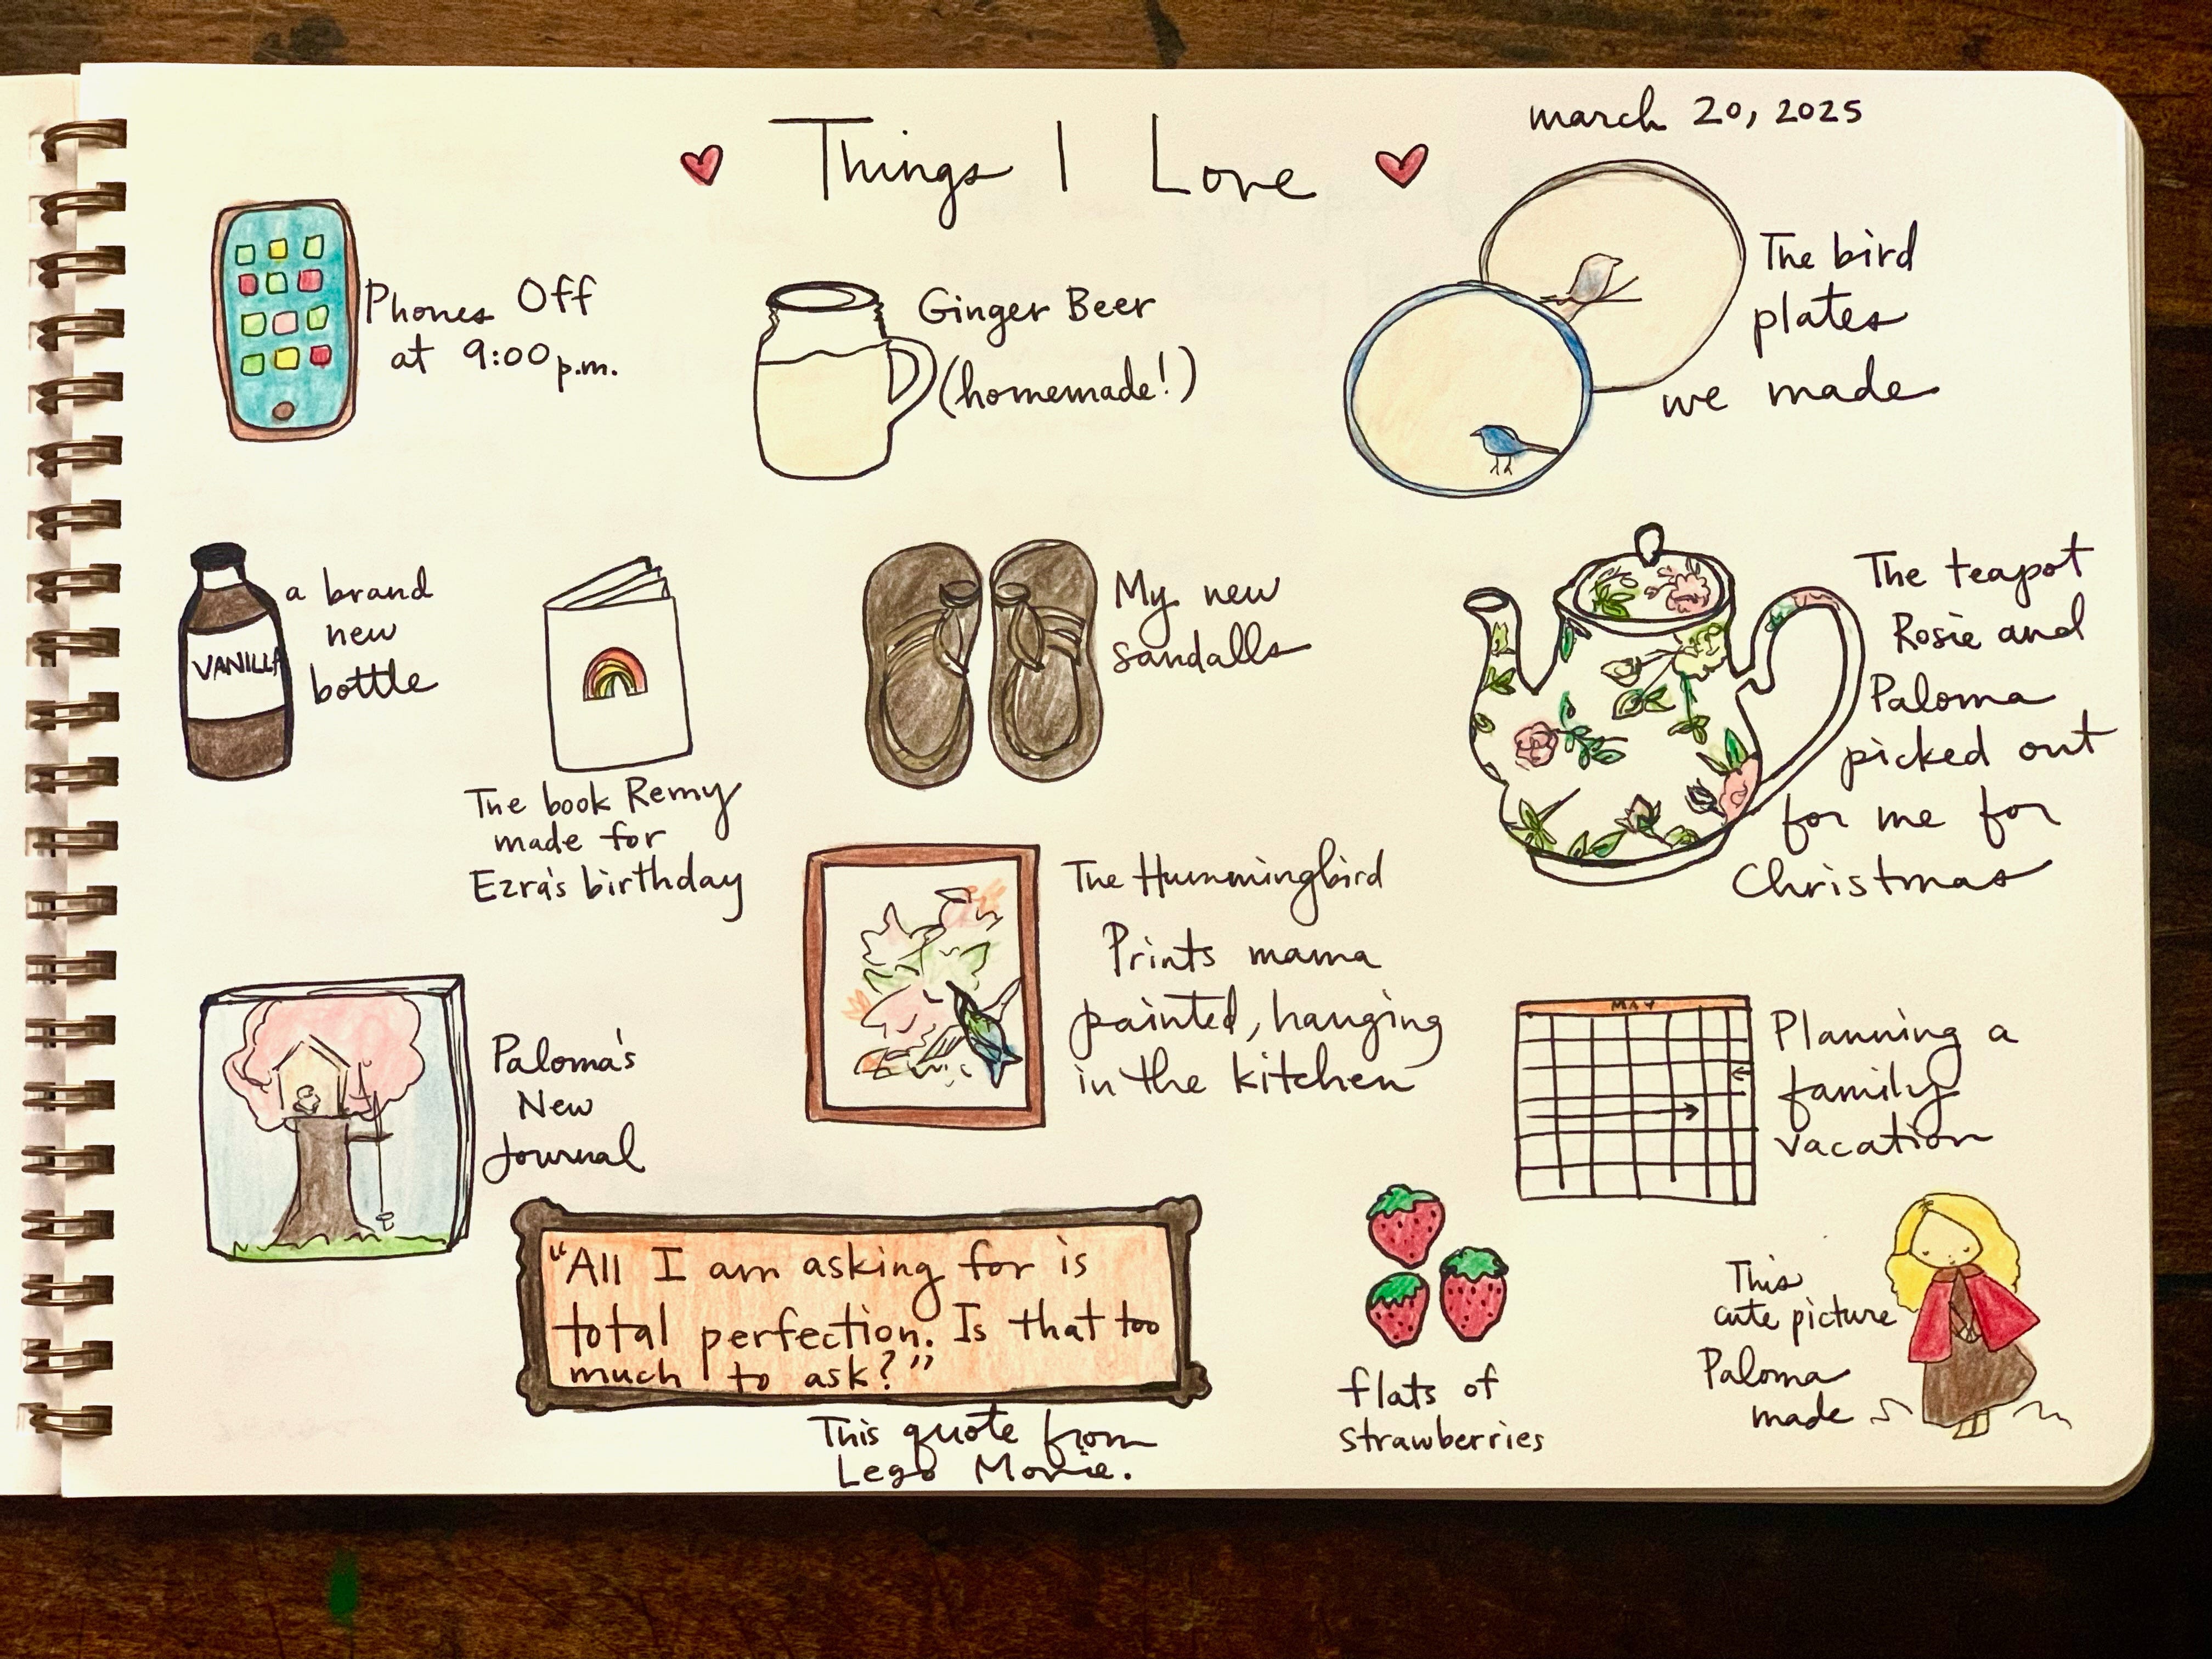 march 20, 2025
Things I Love
Phones Off
at 9:00 p.m.
Ginger Beer
(homemade!)
The bird
plates
we made
VANILLA
a brand
new
bottle
The book Remy
made for
Ezra's birthday
My new
sandalls
The teapot
Rosie and
Paloma
picked out
for me for
Christmas
Paloma's
New
Journal
The Hummingbird
Prints mama
painted, hanging
in the kitchen
MAY
Planning a
family
vacation
"All I am asking for is
total perfection. Is that too
much to ask?"
This quote from
Lego Movie.
flats of
strawberries
This
cute picture
Paloma
made